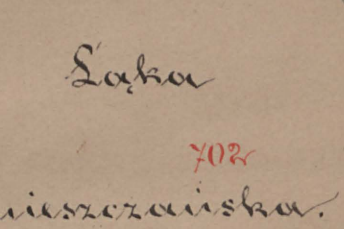 Łąka
702
mieszczańska.